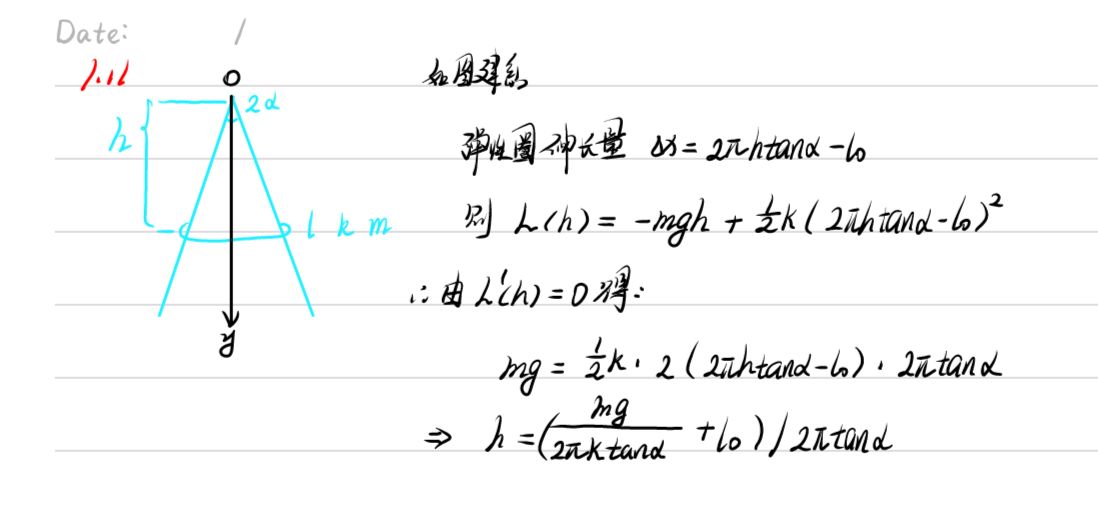 Date: /
1.16
O
2α
h
l k m
y
如图建系
弹性圈伸长量 Δx = 2πhtanα - l₀
则 L(h) = -mgh + ½k(2πhtanα - l₀)²
∴由L'(h) = 0得:
mg = ½k · 2(2πhtanα - l₀) · 2πtanα
⇒ h = (mg/2πktanα + l₀)/2πtanα